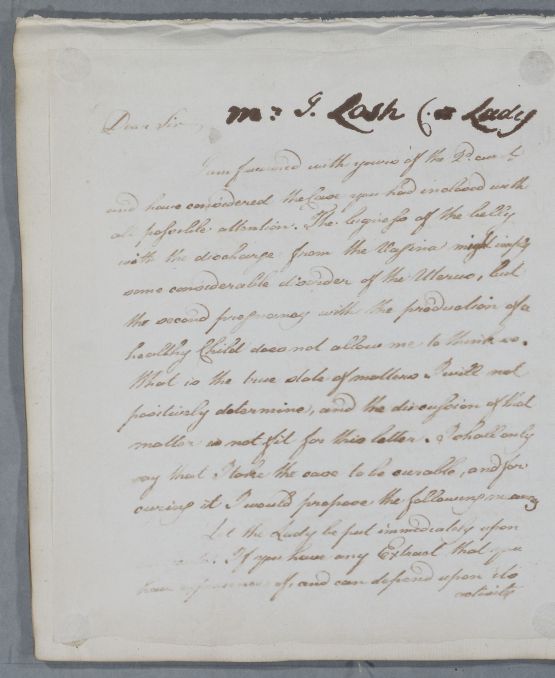 Mr. J. Lash (. a Lady
Dear Sir,
I am favoured with yours of the 2d. curt.
and have considered the Case you had inclosed with
all possible attention. The bigness of the belly
with the discharge from the Vagina might imply
some considerable disorder of the Uterus, but
the second pregnancy with the production of a
healthy Child does not allow me to think so.
What is the true state of matters I will not
positively determine, and the discussion of that
matter is not fit for this letter. I shall only
say that I take the case to be curable, and for
curing it I would propose the following means
Let the Lady be put immediately upon
If you have any Extract that you
have experience of, and can depend upon its
activity